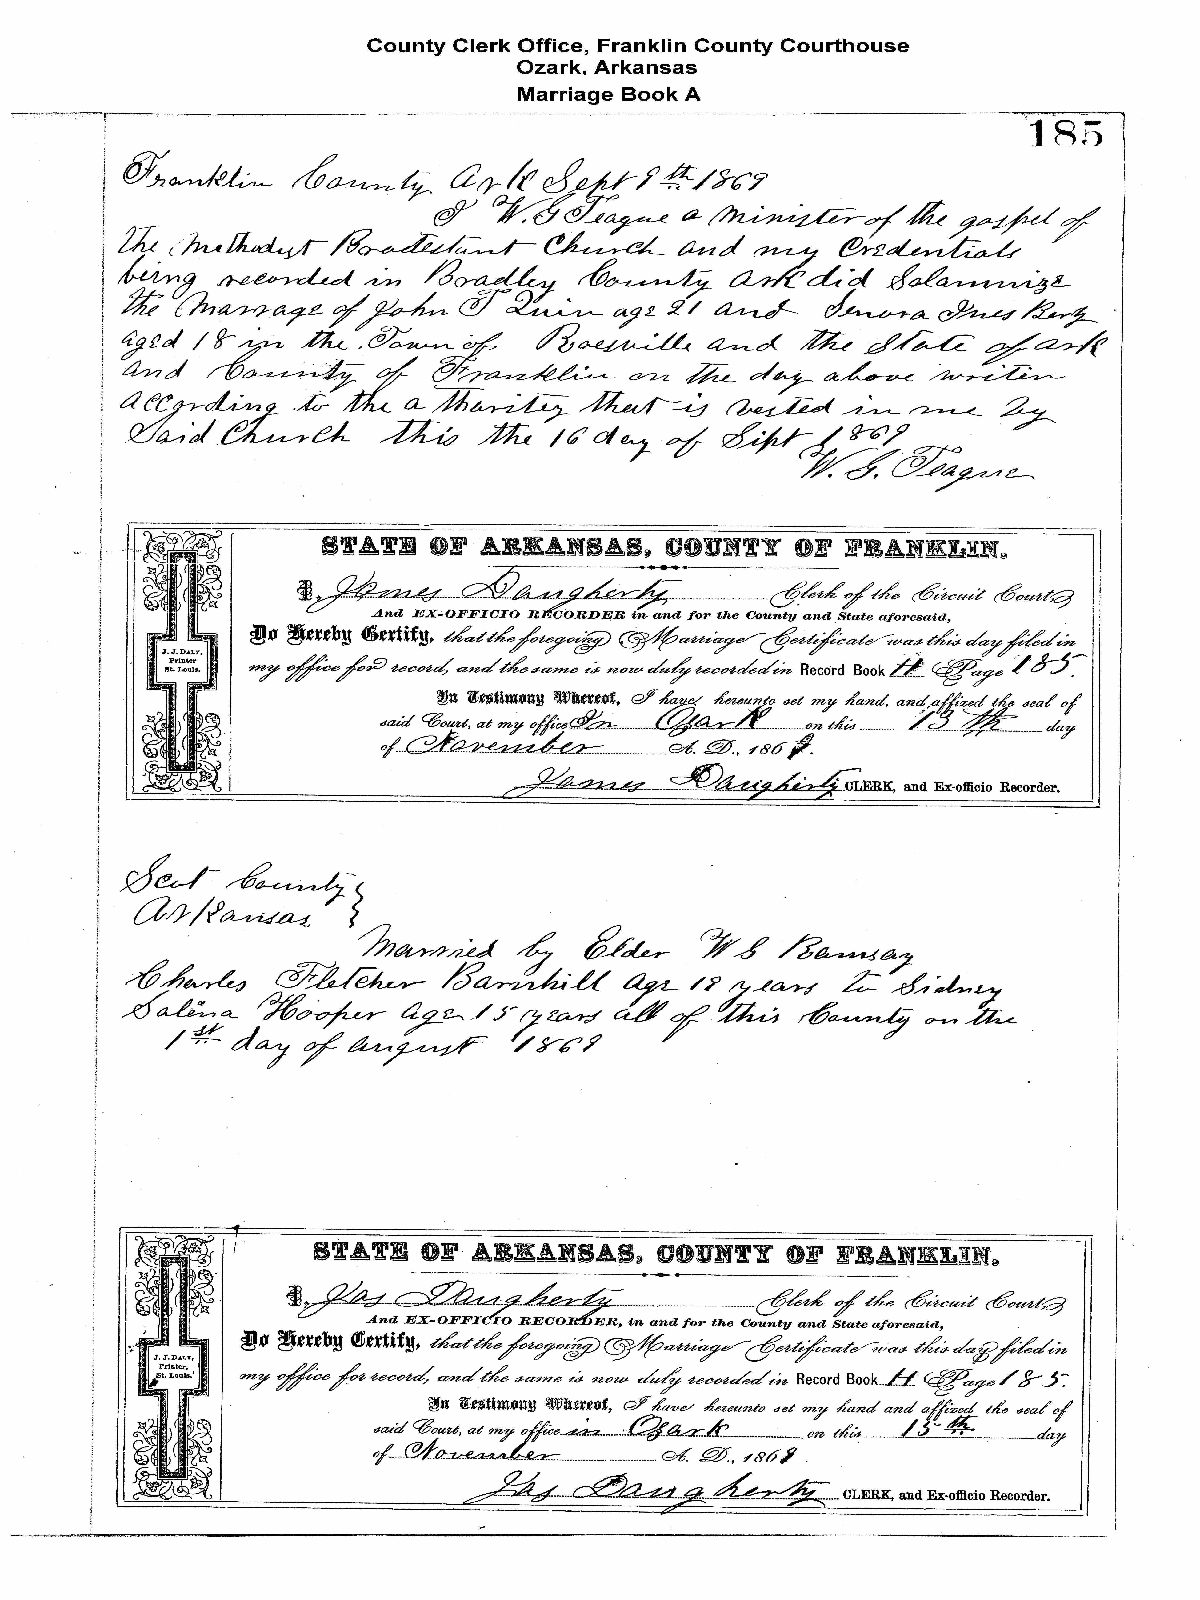 County Clerk Office, Franklin County Courthouse
Ozark, Arkansas
Marriage Book A
185
Franklin County Ark Sept 9th 1869
I W. G Teague a Minister of the gospel of
The Methodyst Protestant Church and my Credentials
being recorded in Bradley County Ark did Solamnize
the Marrage of John T Quin age 21 and Senora Ines Berg
aged 18 in the Town of Roesville and the State of Ark
and County of Franklin on the day above writen
according to the athoritey that is vested in me by
Said Church this the 16 day of Sept 1869
W. G. Teague
STATE OF ARKANSAS, COUNTY OF FRANKLIN.
J. J. DALY,
Printer
St. Louis.
I, James Daugherty Clerk of the Circuit Court
And EX-OFFICIO RECORDER in and for the County and State aforesaid,
Do Hereby Certify, that the foregoing Marriage Certificate was this day filed in
my office for record, and the same is now duly recorded in Record Book H Page 185.
In Testimony Whereof, I have hereunto set my hand, and affixed the seal of
said Court, at my office In Ozark on this 15th day
of November A. D., 1869.
James Daugherty CLERK, and Ex-officio Recorder.
Scot County
Arkansas
Married by Elder W Ramsay
Charles Fletcher Barnhill age 18 years to Sidney
Salena Hooper age 15 years all of this County on the
1st day of august 1869
STATE OF ARKANSAS, COUNTY OF FRANKLIN.
J. J. DALY,
Printer,
St. Louis.
I, Jas Daugherty Clerk of the Circuit Court
And EX-OFFICIO RECORDER, in and for the County and State aforesaid,
Do Hereby Certify, that the foregoing Marriage Certificate was this day filed in
my office for record, and the same is now duly recorded in Record Book H Page 185.
In Testimony Whereof, I have hereunto set my hand and affixed the seal of
said Court, at my office in Ozark on this 15th day
of November A. D., 1869
Jas Daugherty CLERK, and Ex-officio Recorder.